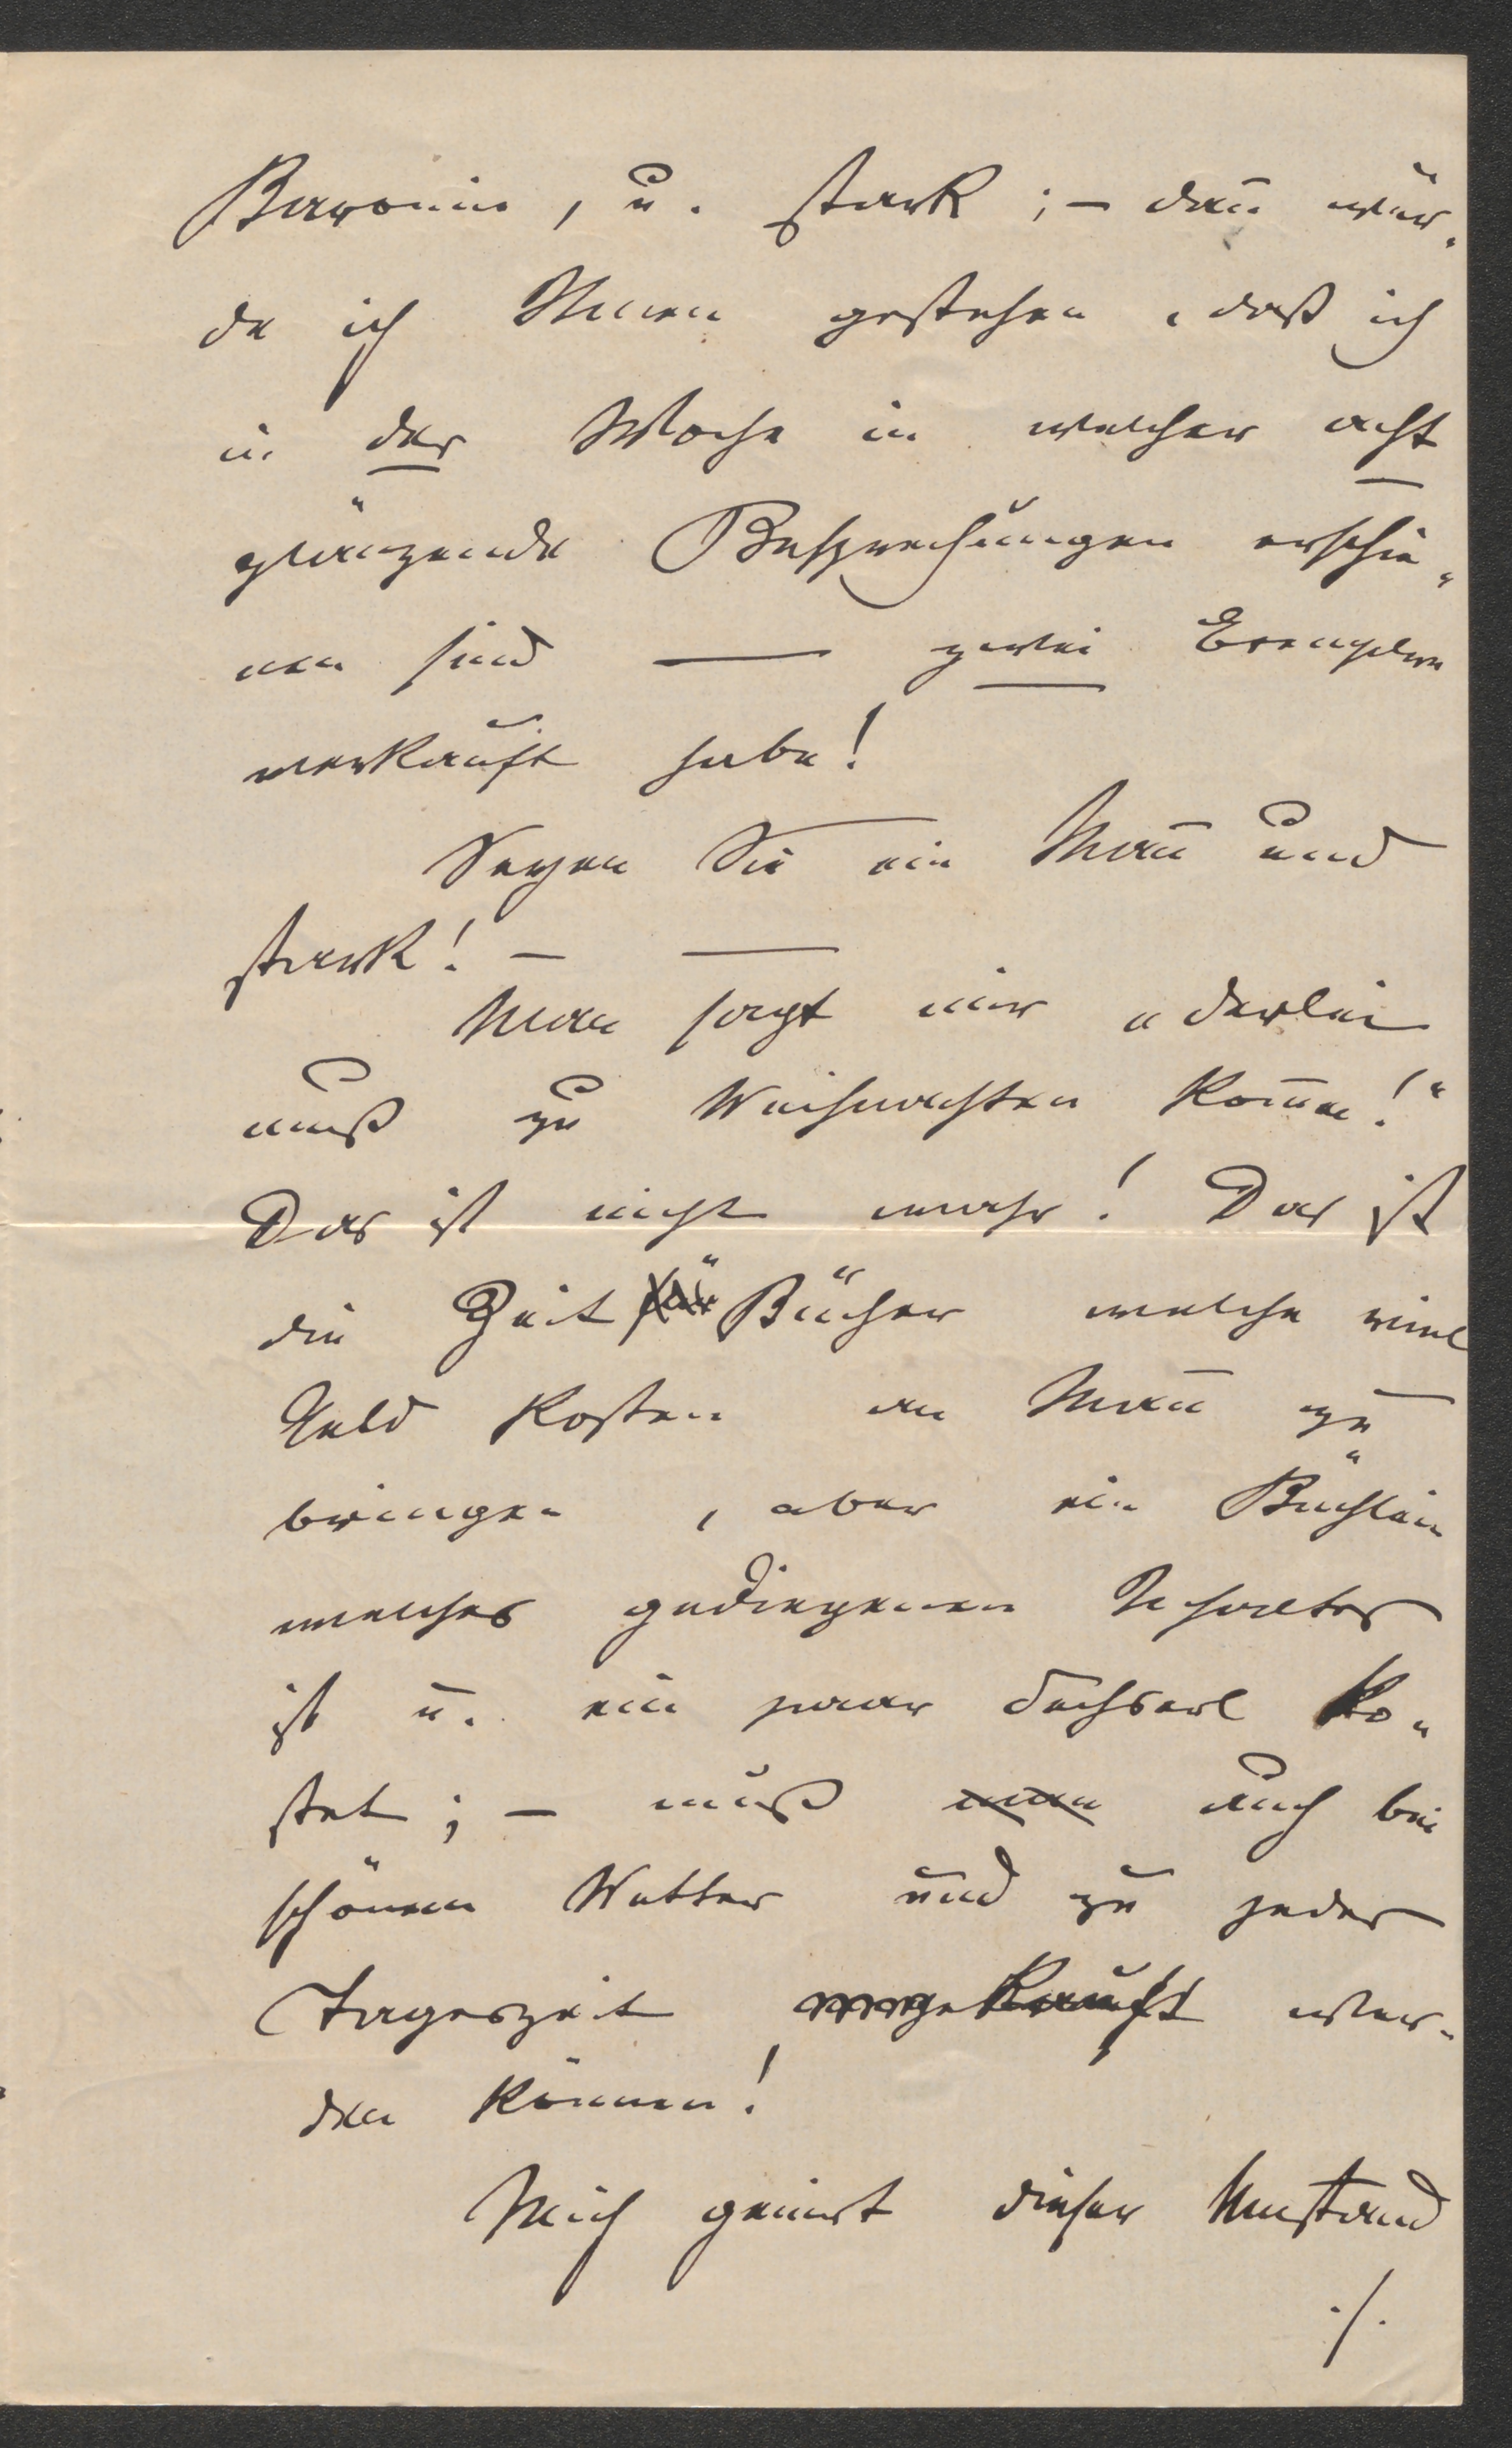 Baronin, u. stark; – dan̄ wür-
de ich Ihnen gestehen, daß ich
in der Woche in welcher acht
glänzende Besprechungen erschie-
nen sind — zwei Exemplare
verkauft habe!
Seyen Sie ein Man̄ und
stark! – —
Man sagt mir „derlei
muß zu Weihnachten kom̄en!“
Das ist nicht wahr! Das ist
die Zeit für Bücher welche viel
Geld kosten an Man̄ zu
bringen, aber ein Büchlein
welches gediegenen Inhaltes
ist u. ein paar Sechserl ko-
stet; – muß man auch bei
schönem Wetter und zu jeder
Tageszeit gekauft wer-
den können!
Mich geniert dieser Umstand
./.